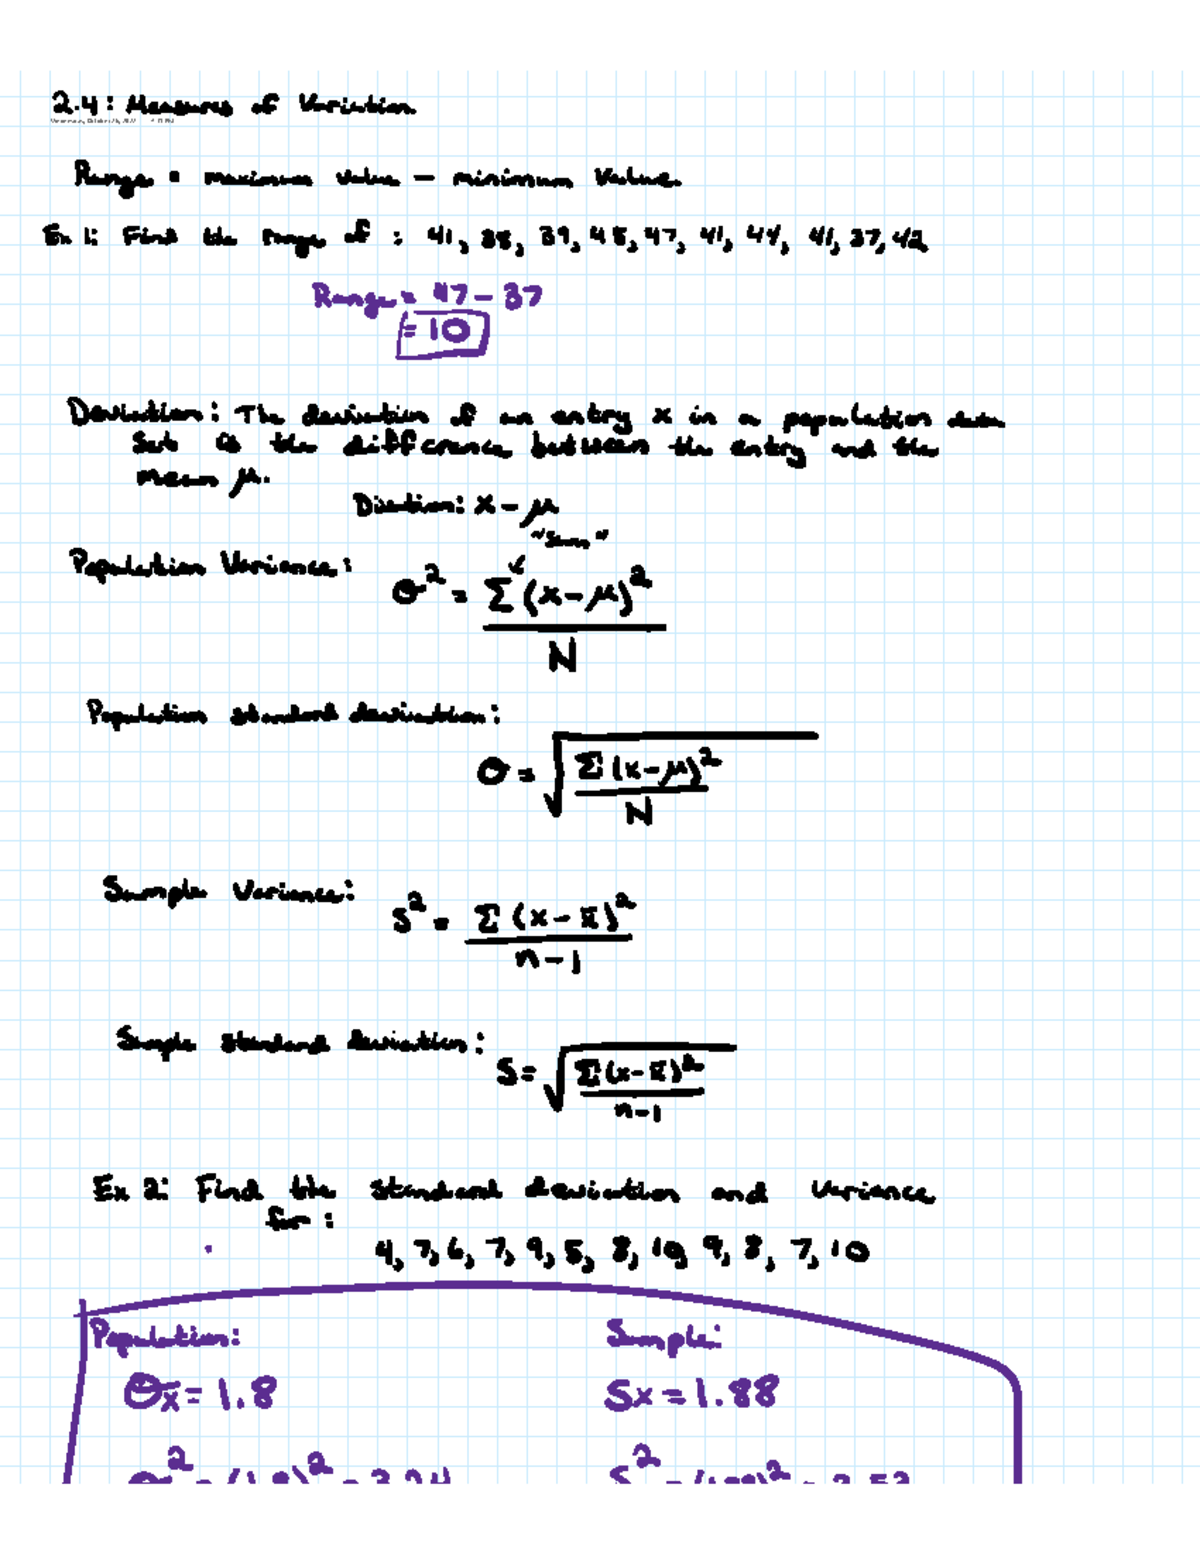 2.4: Measures of Variation
Range = maximum value - minimum value.
Ex 1: Find the range of : 41, 38, 39, 45, 47, 41, 44, 41, 37, 42
Range = 47 - 37
= 10
Deviation: The deviation of an entry x in a population data
set is the difference between the entry and the
mean μ.
x - μ
Population Variance:
"Sum"
σ² = Σ(x-μ)²
N
Population standard deviation:
σ = √Σ(x-μ)²
N
Sample Variance:
S² = Σ(x - x̄)²
n-1
Sample standard deviation:
S = √Σ(x-x̄)²
n-1
Ex 2: Find the standard deviation and variance
for :
4, 7, 6, 7, 9, 5, 8, 10, 9, 8, 7, 10
Population: Sample:
σx̄ = 1.8 Sx = 1.88
σ² = (1.8)² = 3.24 S² = (1.88)² = 3.53